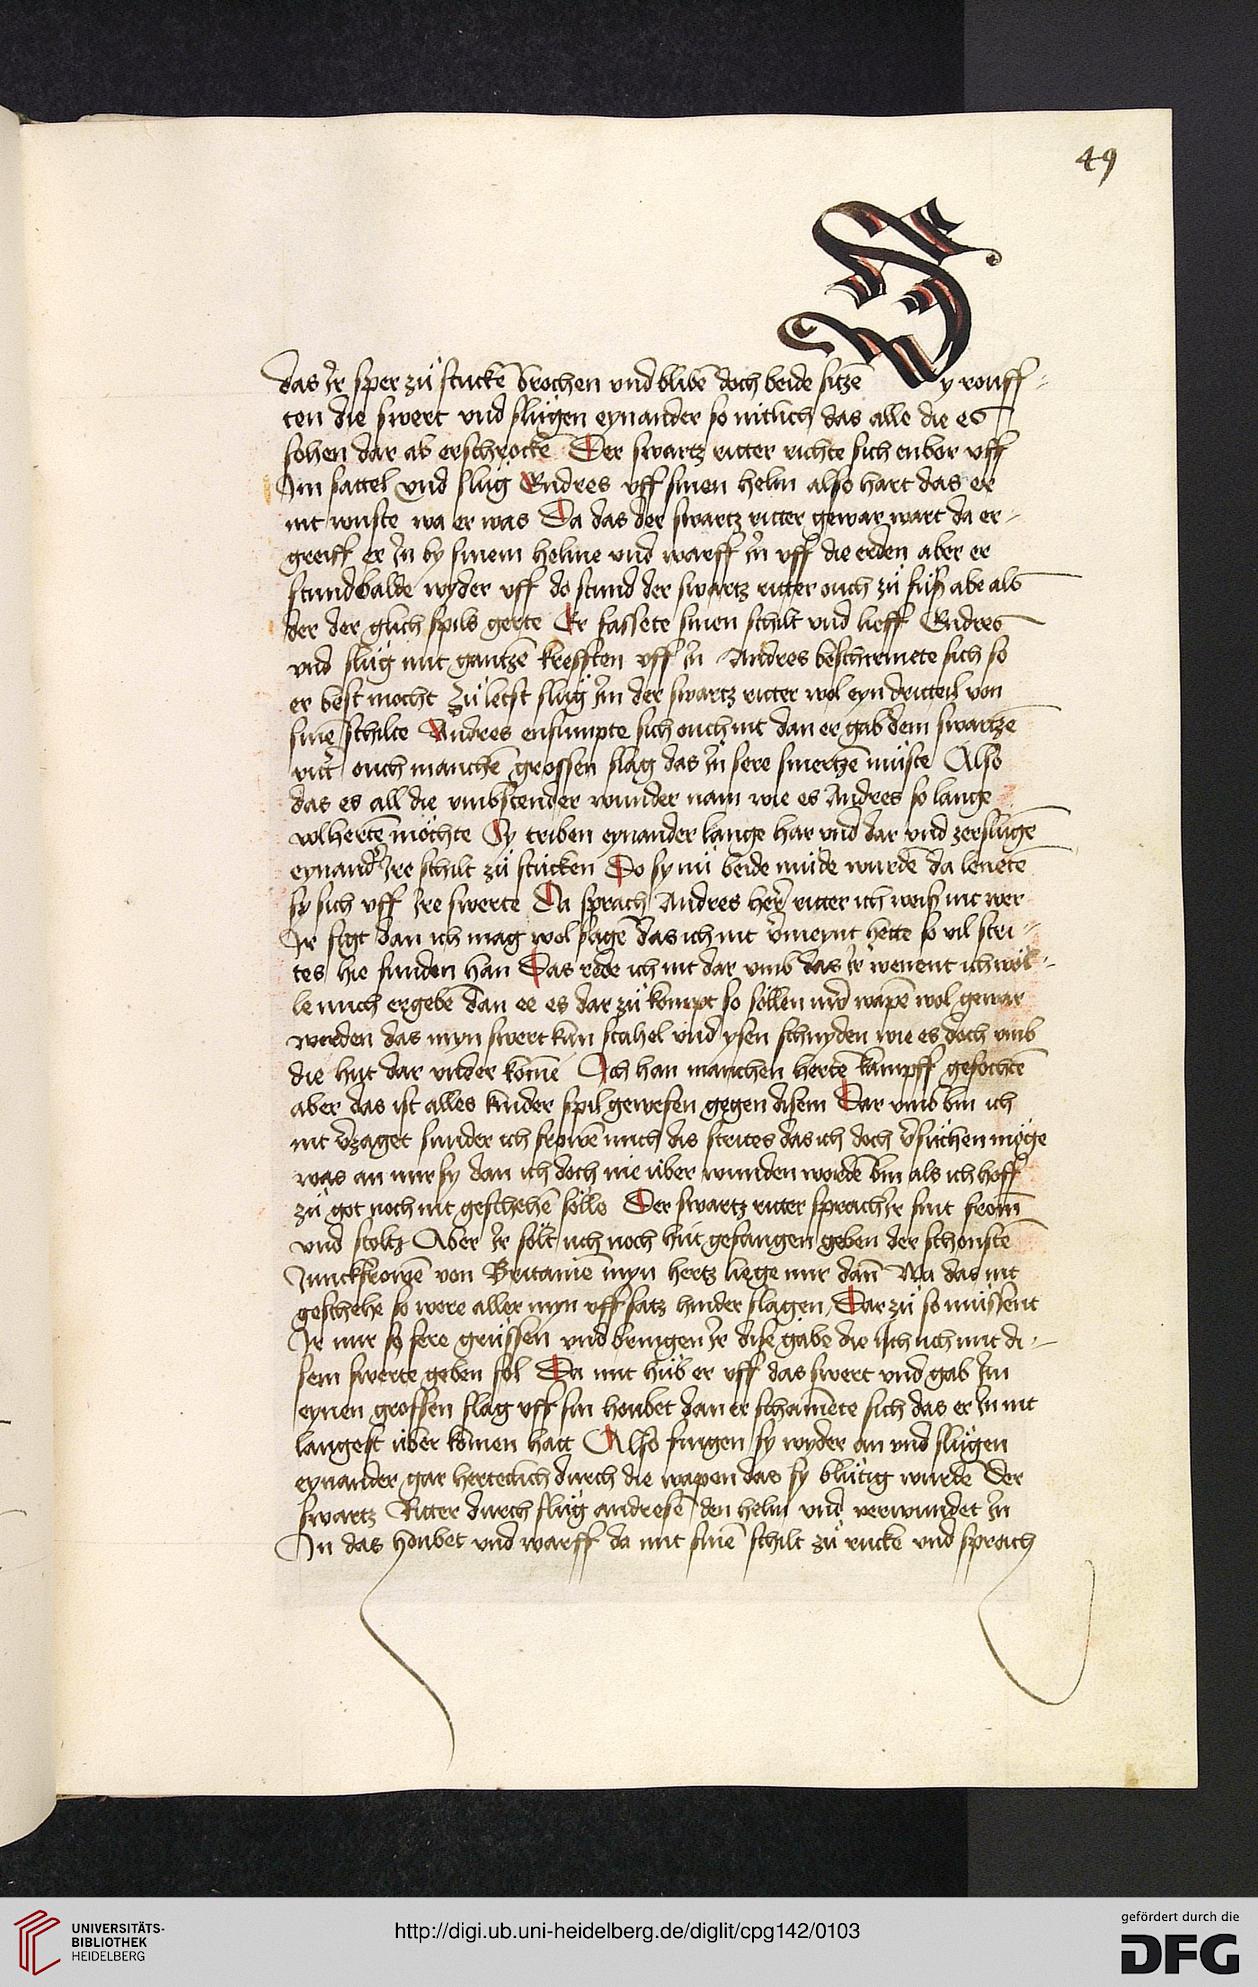 49
S
das Jr sper zů stuckē brochen vnd blibē doch beide sitzē y rouff-
ten die swert vnd slůgen eynander so nitlich das alle die es
sohen dar ab erschrockē Der swartz ritter richte sich enbor vff
Jm sattel vnd slůg Endres vff sinen helm also hart das er
nit wuste wa er was Da das der swartz ritter gewar wart da er-
greiff er Jn by sinem helme vnd warff in vff die erden aber er
stund balde wyder vff do stund der swartz ritter ouch zů fůß abe als
der der glich spils gerte Er fassete sinen schilt vnd lieff Endres
vnd slůg mit gantzē krefften vff Jn Andres beschirmete sich so
er best mocht Zů letst slůg Jm der swartz ritter wol eyn dritteil von
sinē schilte Andres ensumpte sich ouch nit dan er gab dem swartzē
ritt' ouch manchē grossen slag das Jn sere smertzē můste Also
das es all die vmbstender wunder nam wie es Andres so lange
volhertē mőchte Sy triben eynander lange har vnd dar vnd zerslůgē
eynand' Jre schilt zů stucken Do sy nů beide můde wurdē da lenetē
sy sich vff Jre swerte Da sprach Andres her ritter ich weiß nit wer
Jr sigt dan ich mag wol sagē das ich nit v'meynt hette so vil stri-
tes hie funden han Das rede ich nit dar vmb das Jr wenent ich wől-
le mich ergebē dan ee es dar zů kompt so sőllen uwer wapē wol gewar
werden das myn swert kan stahel vnd ysen schnyden wie es doch vmb
die hut dar vnder komē Jch han manchen hertē kampff gefochtē
aber das ist alles kinder spil gewesen gegen disem Dar vmb bin ich
nit v'zaget sunder ich frowē mich dis strites das ich doch v'sůchen mőge
was an mir sy dan ich doch nie über wunden wordē bin als ich hoff
zů got noch nit geschehē sőlle Der swartz ritter sprach Jr sint from
vnd stoltz Aber Jr sőlt uch noch hůt gefangen geben der schonstē
Junckfrowē von Britanie myn hertz liege mir dan Wa das nit
geschehe so were aller myn vff satz hinder slagen Dar zů so můssent
Jr mir sy sere grůssen vnd bringen Jr dise gabe die ich uch mit di-
sem swerte geben sol Da mit hůb er vff das swert vnd gab Jm
eynen grossen slag vff sin houbet dan er schamete sich das er Jn nit
langest über komen hatt Also fingen sy wyder an vnd slůgen
eynander gar herteclich durch die wapen das sy blůtig wurdē Der
swartz Ritter durch slůg andresē den helm vnd verwundet Jn
Jn das houbet vnd warff da mit sinē schilt zů rucke vnd sprach
UNIVERSITÄTS-
BIBLIOTHEK
HEIDELBERG
http://digi.ub.uni-heidelberg.de/diglit/cpg142/0103
gefördert durch die
DFG